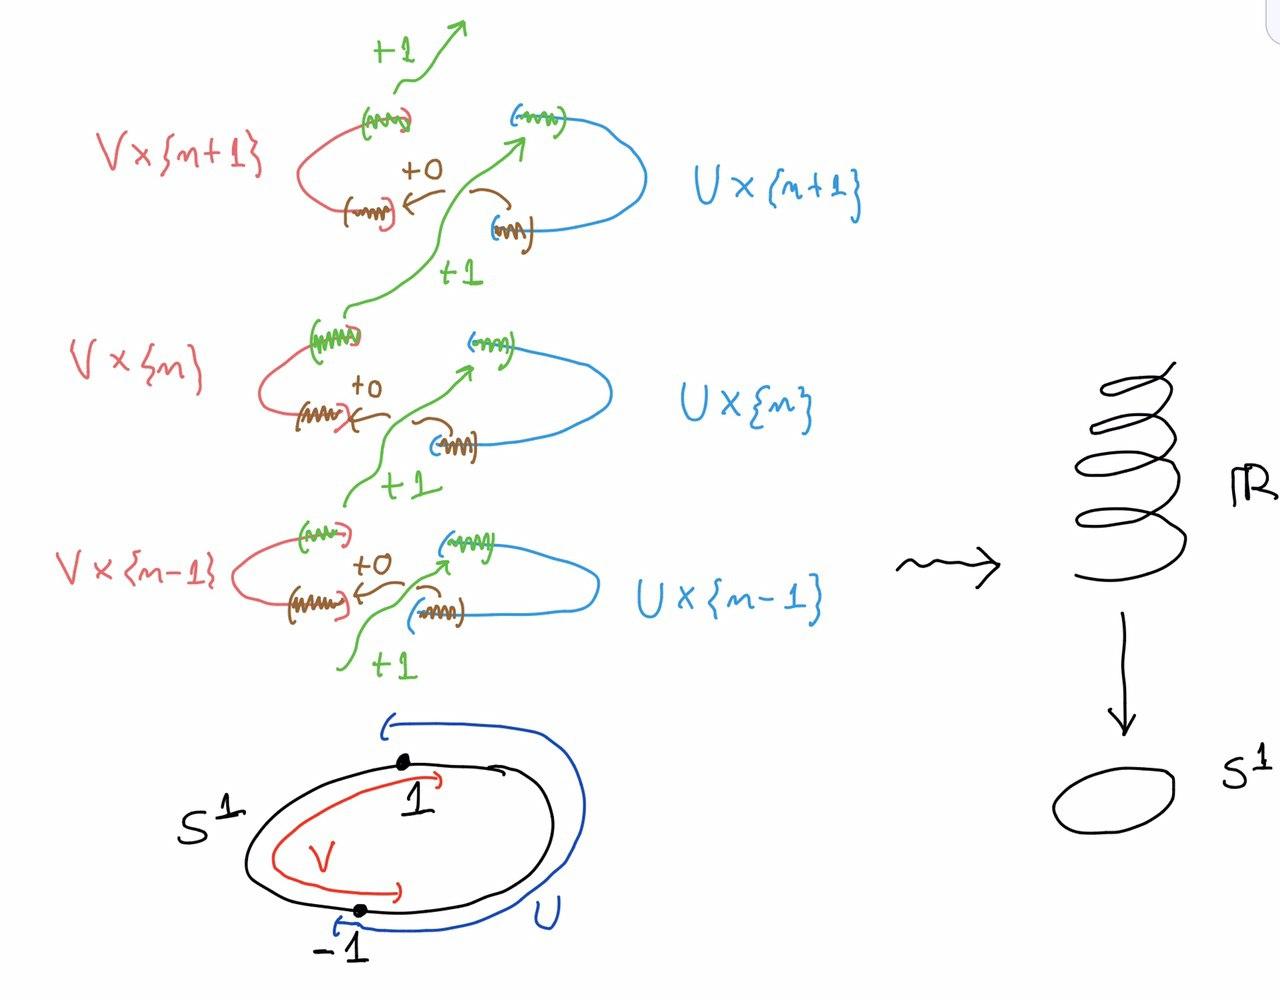 +1
V×{n+1}
+0
U×{n+1}
+1
V×{n}
+0
U×{n}
+1
V×{n-1}
+0
U×{n-1}
+1
ℝ
S¹
1
S¹
V
U
-1